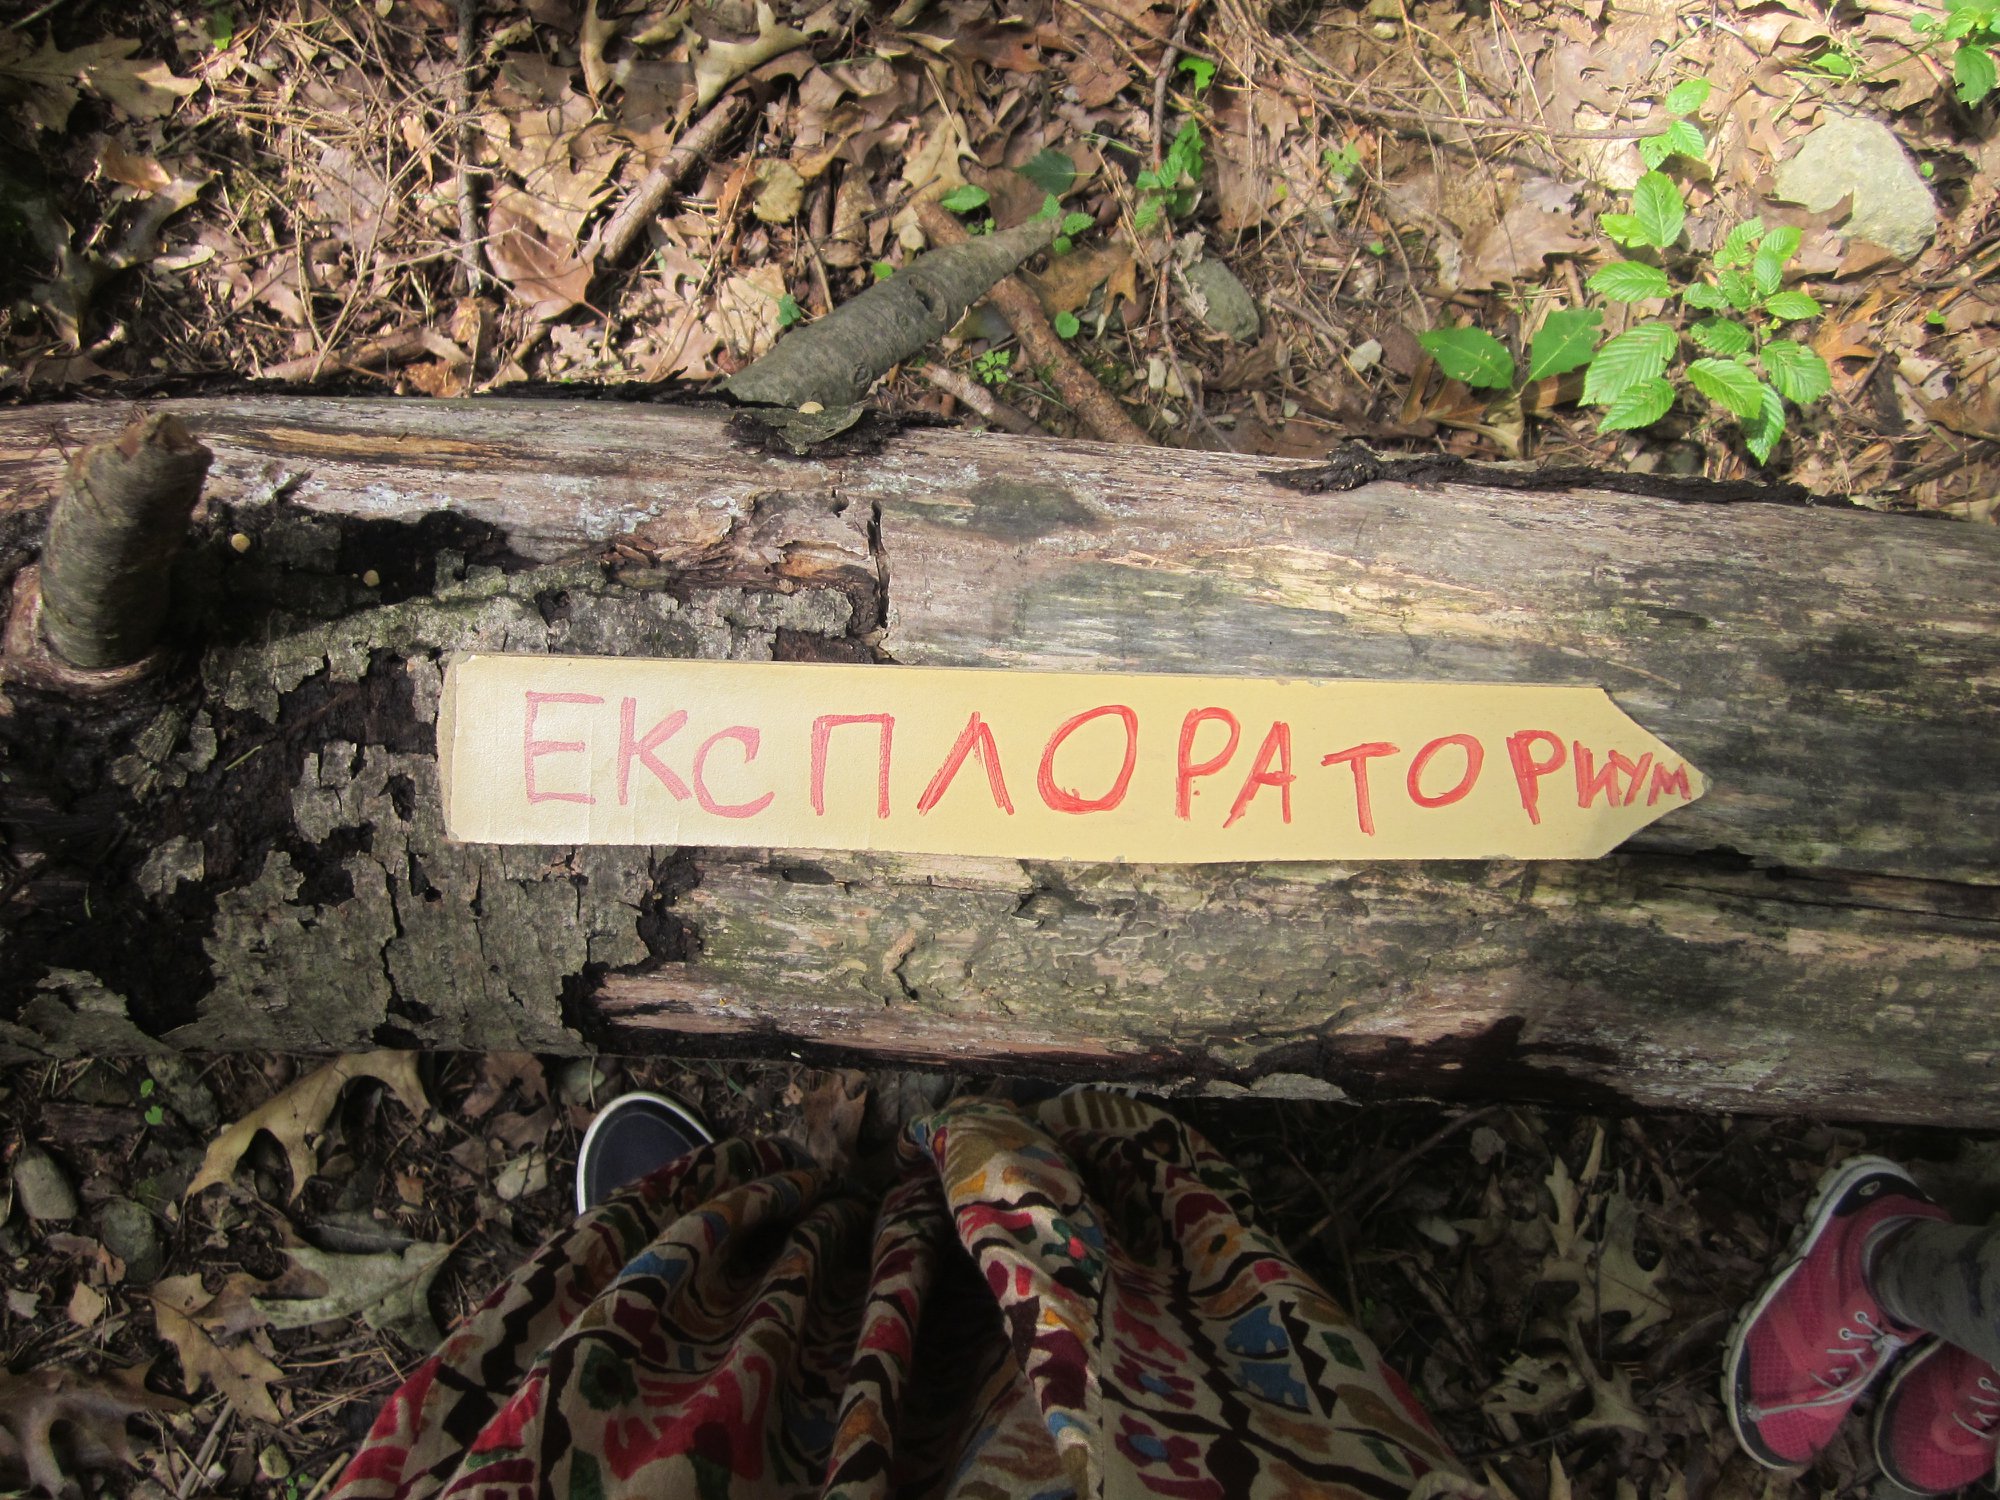 ЕКСПЛОРАТОРИУМ